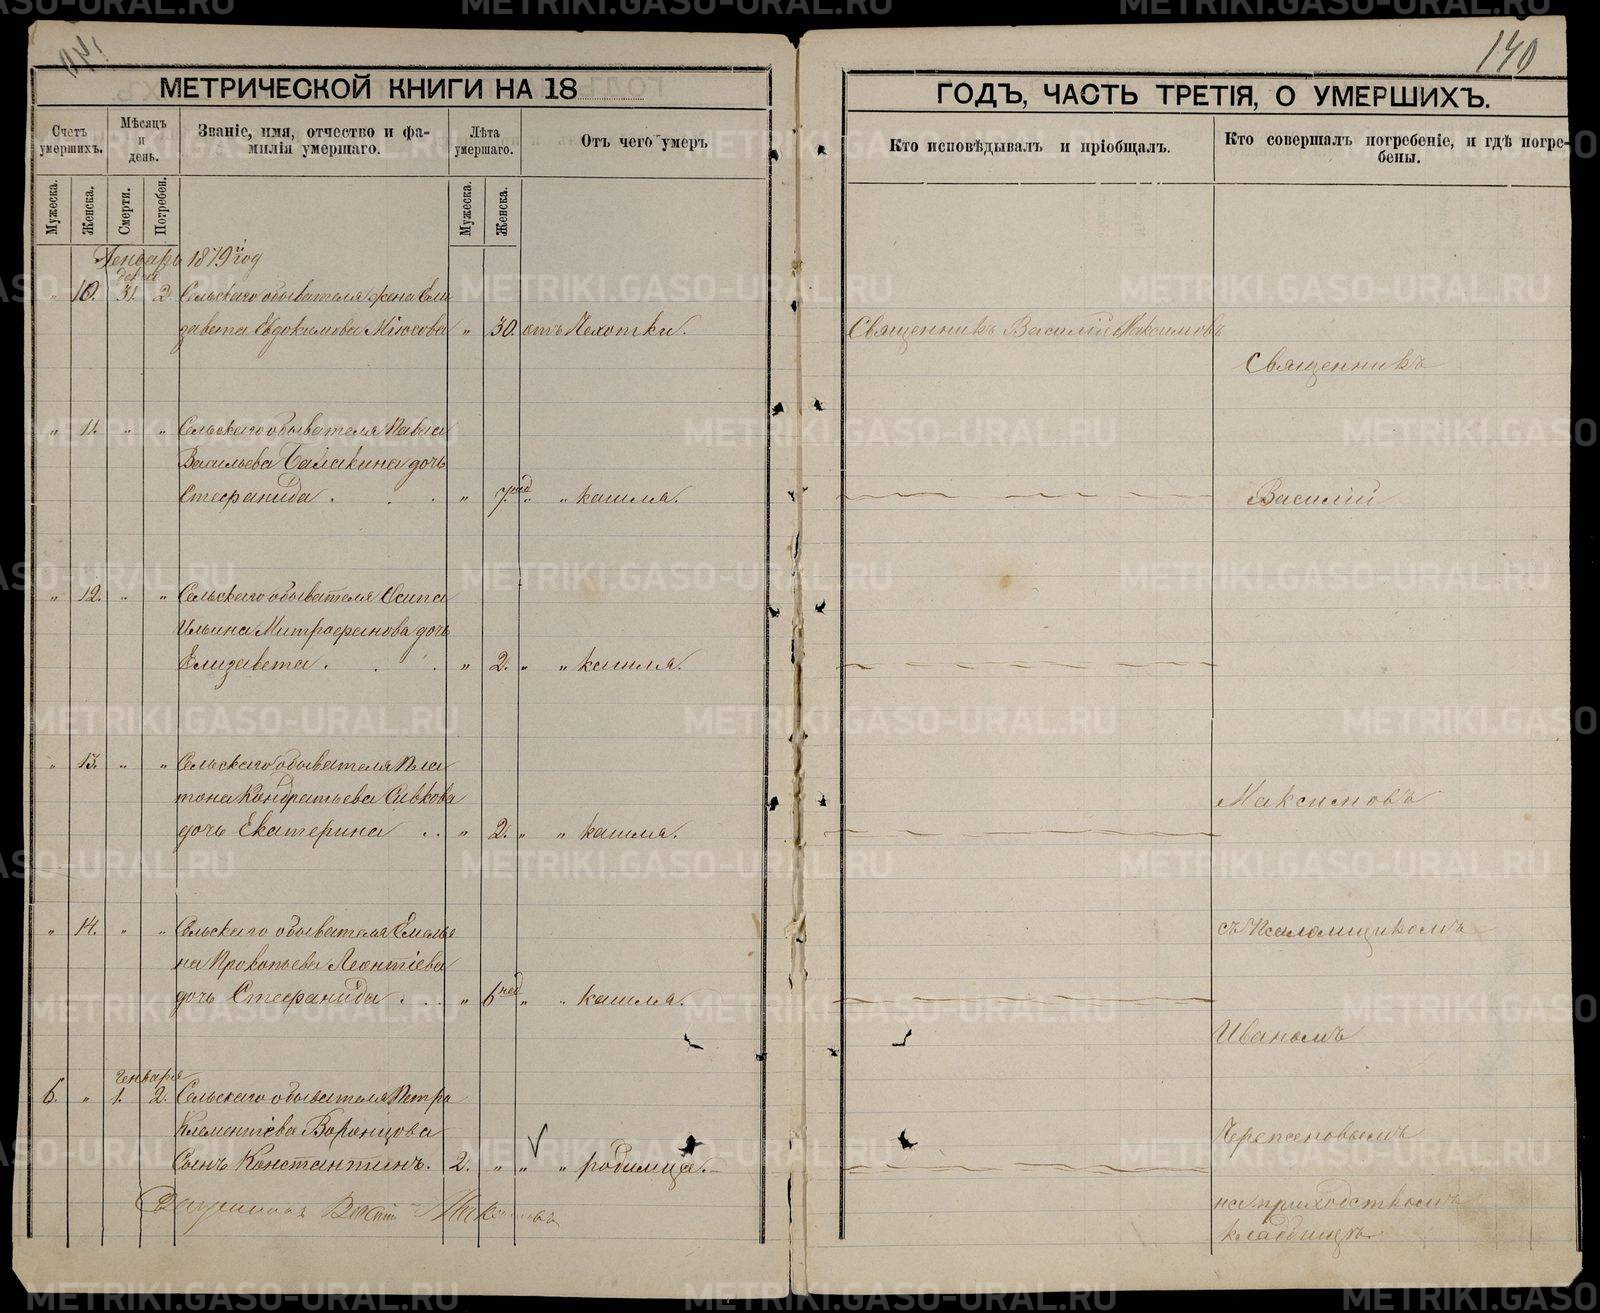 140
МЕТРИЧЕСКОЙ КНИГИ НА 18
ГОДЪ, ЧАСТЬ ТРЕТІЯ, О УМЕРШИХЪ.
Счетъ умершихъ.
Мѣсяцъ и день.
Званіе, имя, отчество и фа-
милія умершаго.
Лѣта умершаго.
Отъ чего умеръ
Кто исповѣдывалъ и пріобщалъ.
Кто совершалъ погребеніе, и гдѣ погре-
бены.
Мужеска.
Женска.
Смерти.
Погребен.
Мужеска.
Женска.
Генварь 1879 год
" 10. 31. 2. Сельскаго обывателя жена Ели
завета Евдокимова " 30. отъ Чехотки. Священникъ Василій Максимовъ
Священникъ
" 11. " " Сельскаго обывателя Павла
Васильева Балакина дочь
Стефанида . . . " 7 нед " " кашля. Василій
" 12. " " Сельскаго обывателя Осипа
Ильина Митрофанова дочь
Елизавета . . . " 2. " " кашля.
" 13. " " Сельскаго обывателя Пла
тона Кондратьева Сивкова Максимовъ
дочь Екатерина . . " 2. " " кашля.
" 14. " " Сельскаго обывателя Емелья съ Псаломщикомъ
на Прокопьева Леонтіева
дочь Стефанида . . . " 6 нед " " кашля.
Иваномъ
Генваря
6. " 1. 2. Сельскаго обывателя Петра
Клементіева Воронцова
Сынъ Константинъ. 2. " " " родимца.
на приходскомъ
кладбищѣ
Священникъ Василій Максимовъ
METRIKI.GASO-URAL.RU